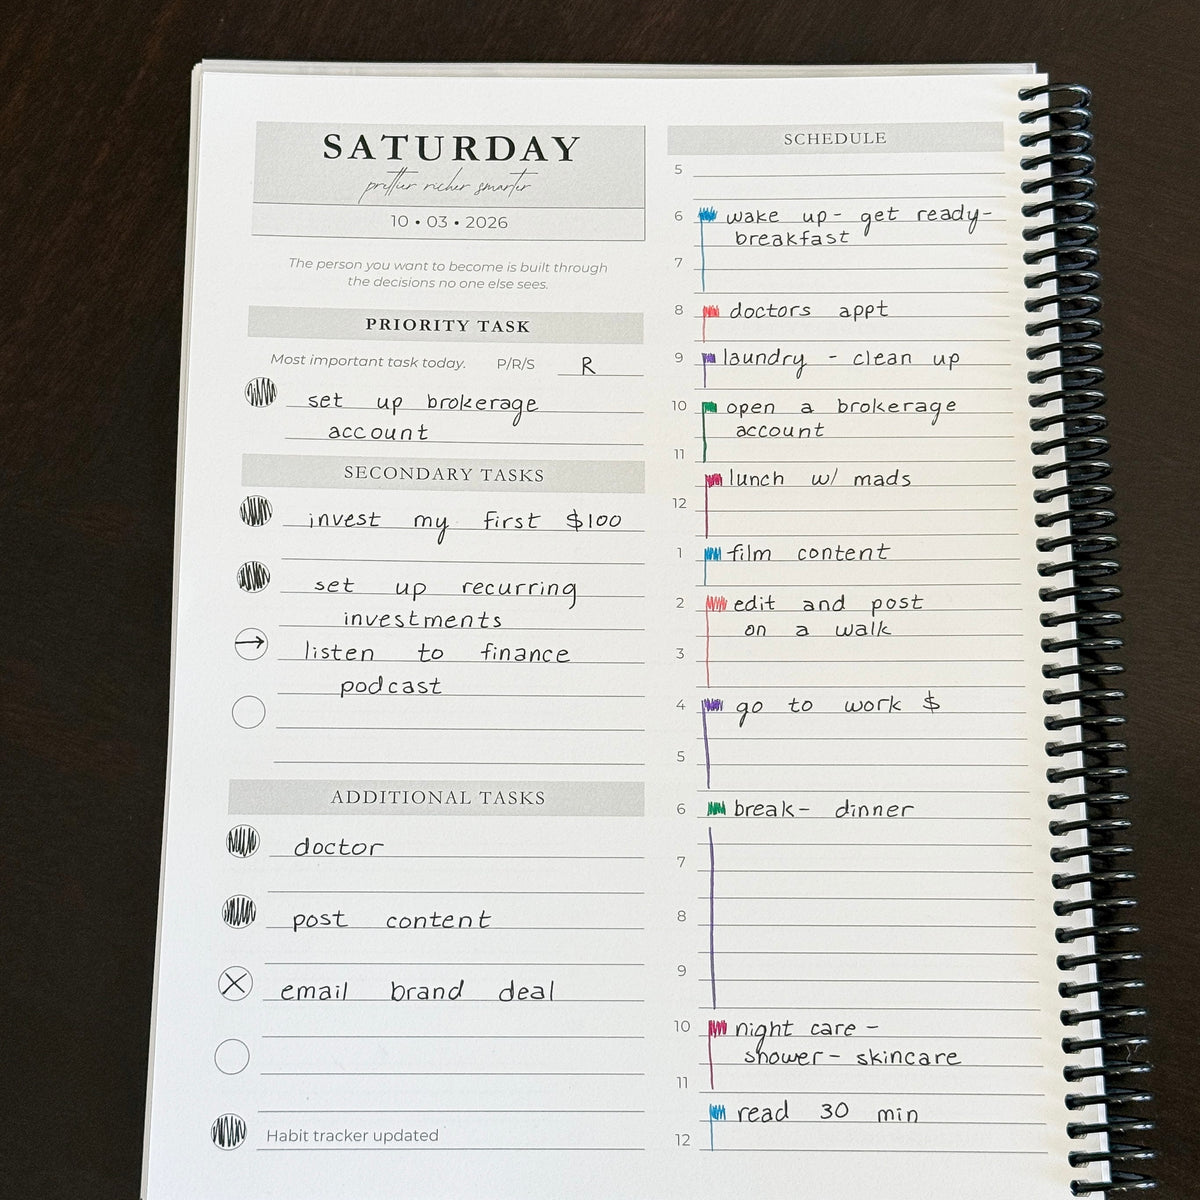 SATURDAY
prettier richer smarter
10 • 03 • 2026
The person you want to become is built through
the decisions no one else sees.
PRIORITY TASK
Most important task today. P/R/S R
set up brokerage
account
SECONDARY TASKS
invest my first $100
set up recurring
investments
listen to finance
podcast
ADDITIONAL TASKS
doctor
post content
email brand deal
Habit tracker updated
SCHEDULE
5
6 wake up - get ready -
breakfast
7
8 doctors appt
9 laundry - clean up
10 open a brokerage
account
11
lunch w/ mads
12
1 film content
2 edit and post
on a walk
3
4 go to work $
5
6 break - dinner
7
8
9
10 night care -
shower - skincare
11
read 30 min
12